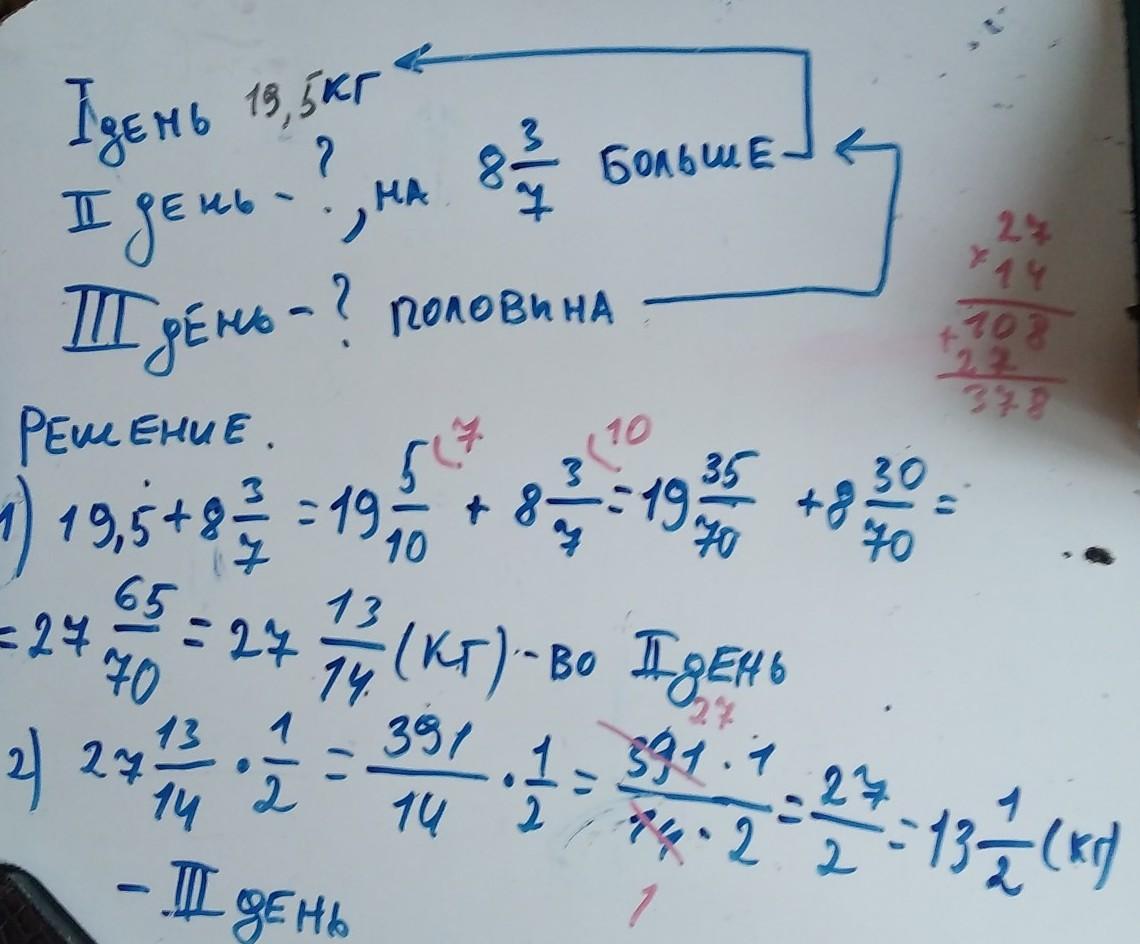 I день 19,5 кг
II день - ?, на 8 3/7 больше
III день - ? половина
27
× 14
+ 108
27
378
Решение.
1) 19,5 + 8 3/7 = 19 5/10 (7 + 8 3/7 (10 = 19 35/70 + 8 30/70 =
= 27 65/70 = 27 13/14 (кг) - во II день
2) 27 13/14 · 1/2 = 391/14 · 1/2 = 391 · 1/14 · 2 = 27/2 = 13 1/2 (кг)
27
1
- III день